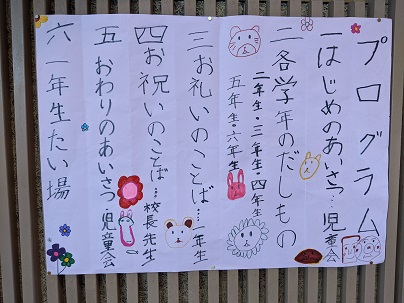 プログラム
一はじめのあいさつ…児童会
二各学年のだしもの
二年生・三年生・四年生
五年生・六年生
三お礼いのことば…一年生
四お祝いのことば…校長先生
五おわりのあいさつ…児童会
六一年生たい場